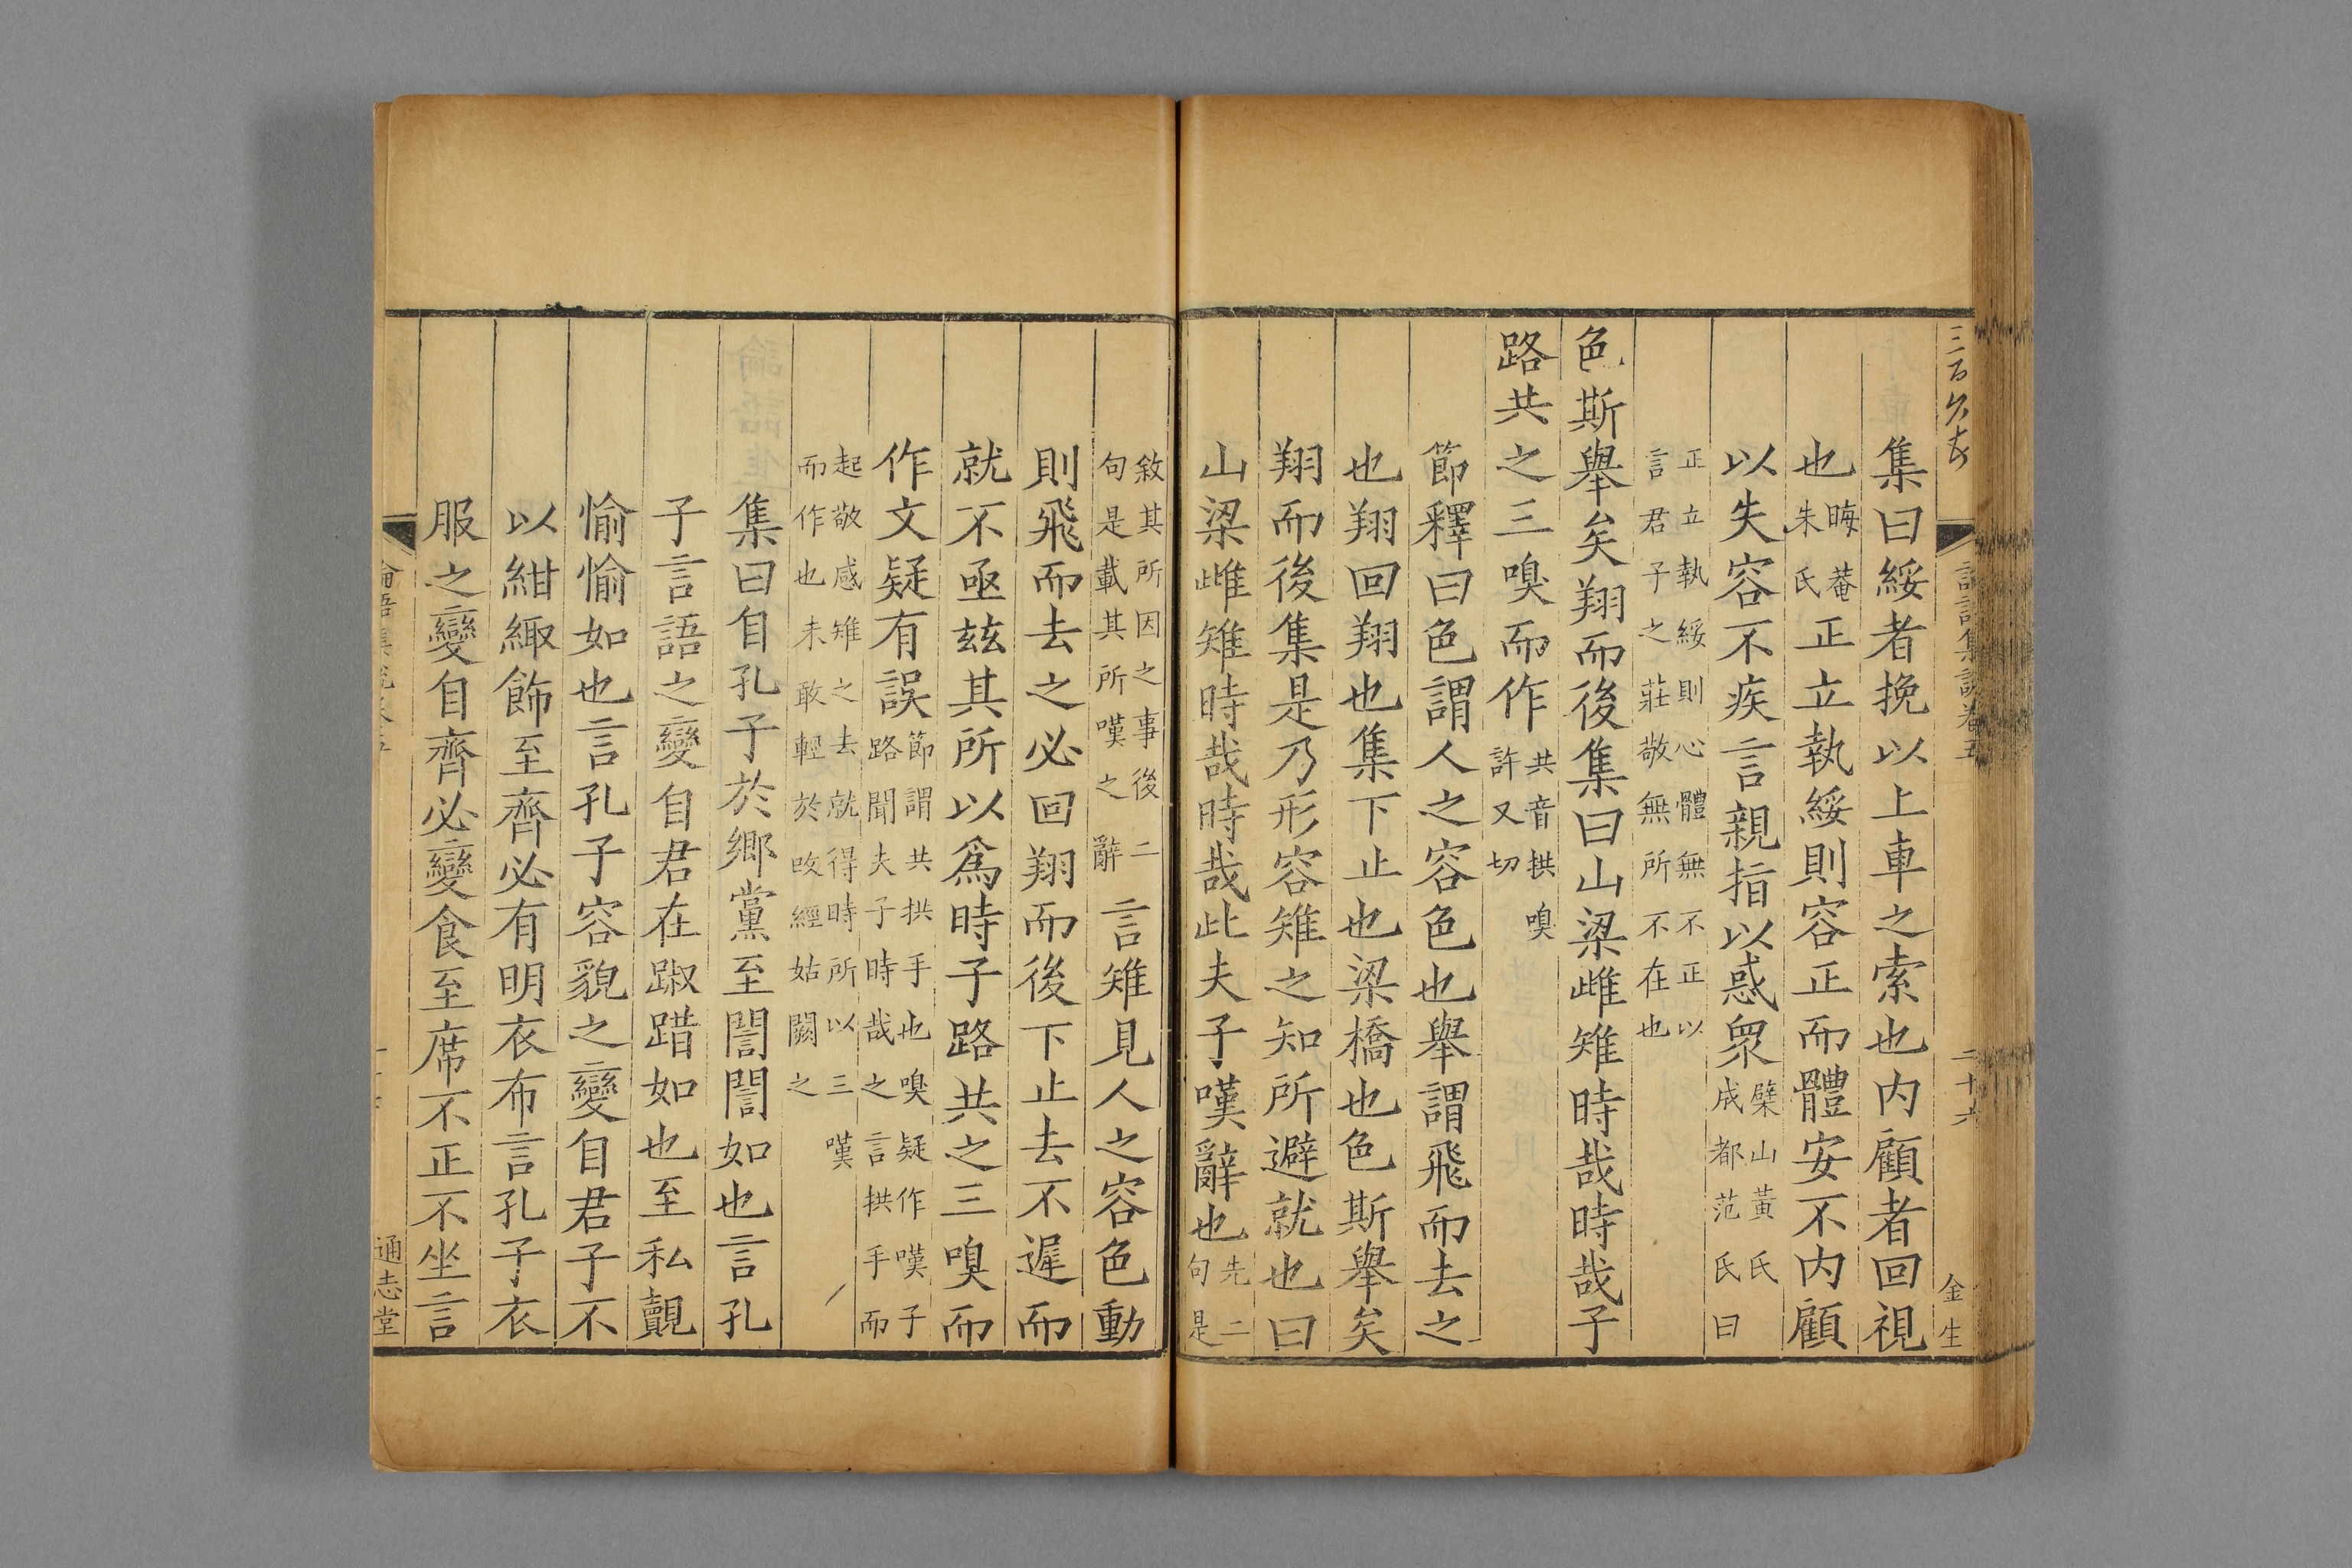 集曰綏者挽以上車之索也内顧者回視
也晦菴朱氏正立執綏則容正而體安不内顧
以失容不疾言親指以惑衆檗山黃氏成都范氏曰
正立執綏則心體無不正以言君子之莊敬無所不在也
色斯舉矣翔而後集曰山梁雌雉時哉時哉子
路共之三嗅而作共音拱嗅許又切
節釋曰色謂人之容色也舉謂飛而去之
也翔回翔也集下止也梁橋也色斯舉矣
翔而後集是乃形容雉之知所避就也曰
山梁雌雉時哉時哉此夫子嘆辭也先二句是
敘其所因之事後二句是載其所嘆之辭言雉見人之容色動
則飛而去之必回翔而後下止去不遲而
就不亟兹其所以爲時子路共之三嗅而
作文疑有誤節謂共拱手也嗅疑作嘆子路聞夫子時哉之言拱手而
起敬感雉之去就得時所以三嘆而作也未敢輕於改經姑闕之
集曰自孔子於鄉黨至誾誾如也言孔
子言語之變自君在踧踖如也至私覿
愉愉如也言孔子容貌之變自君子不
以紺緅飾至齊必有明衣布言孔子衣
服之變自齊必變食至席不正不坐言
論語集說卷五
二十六
金生
通志堂